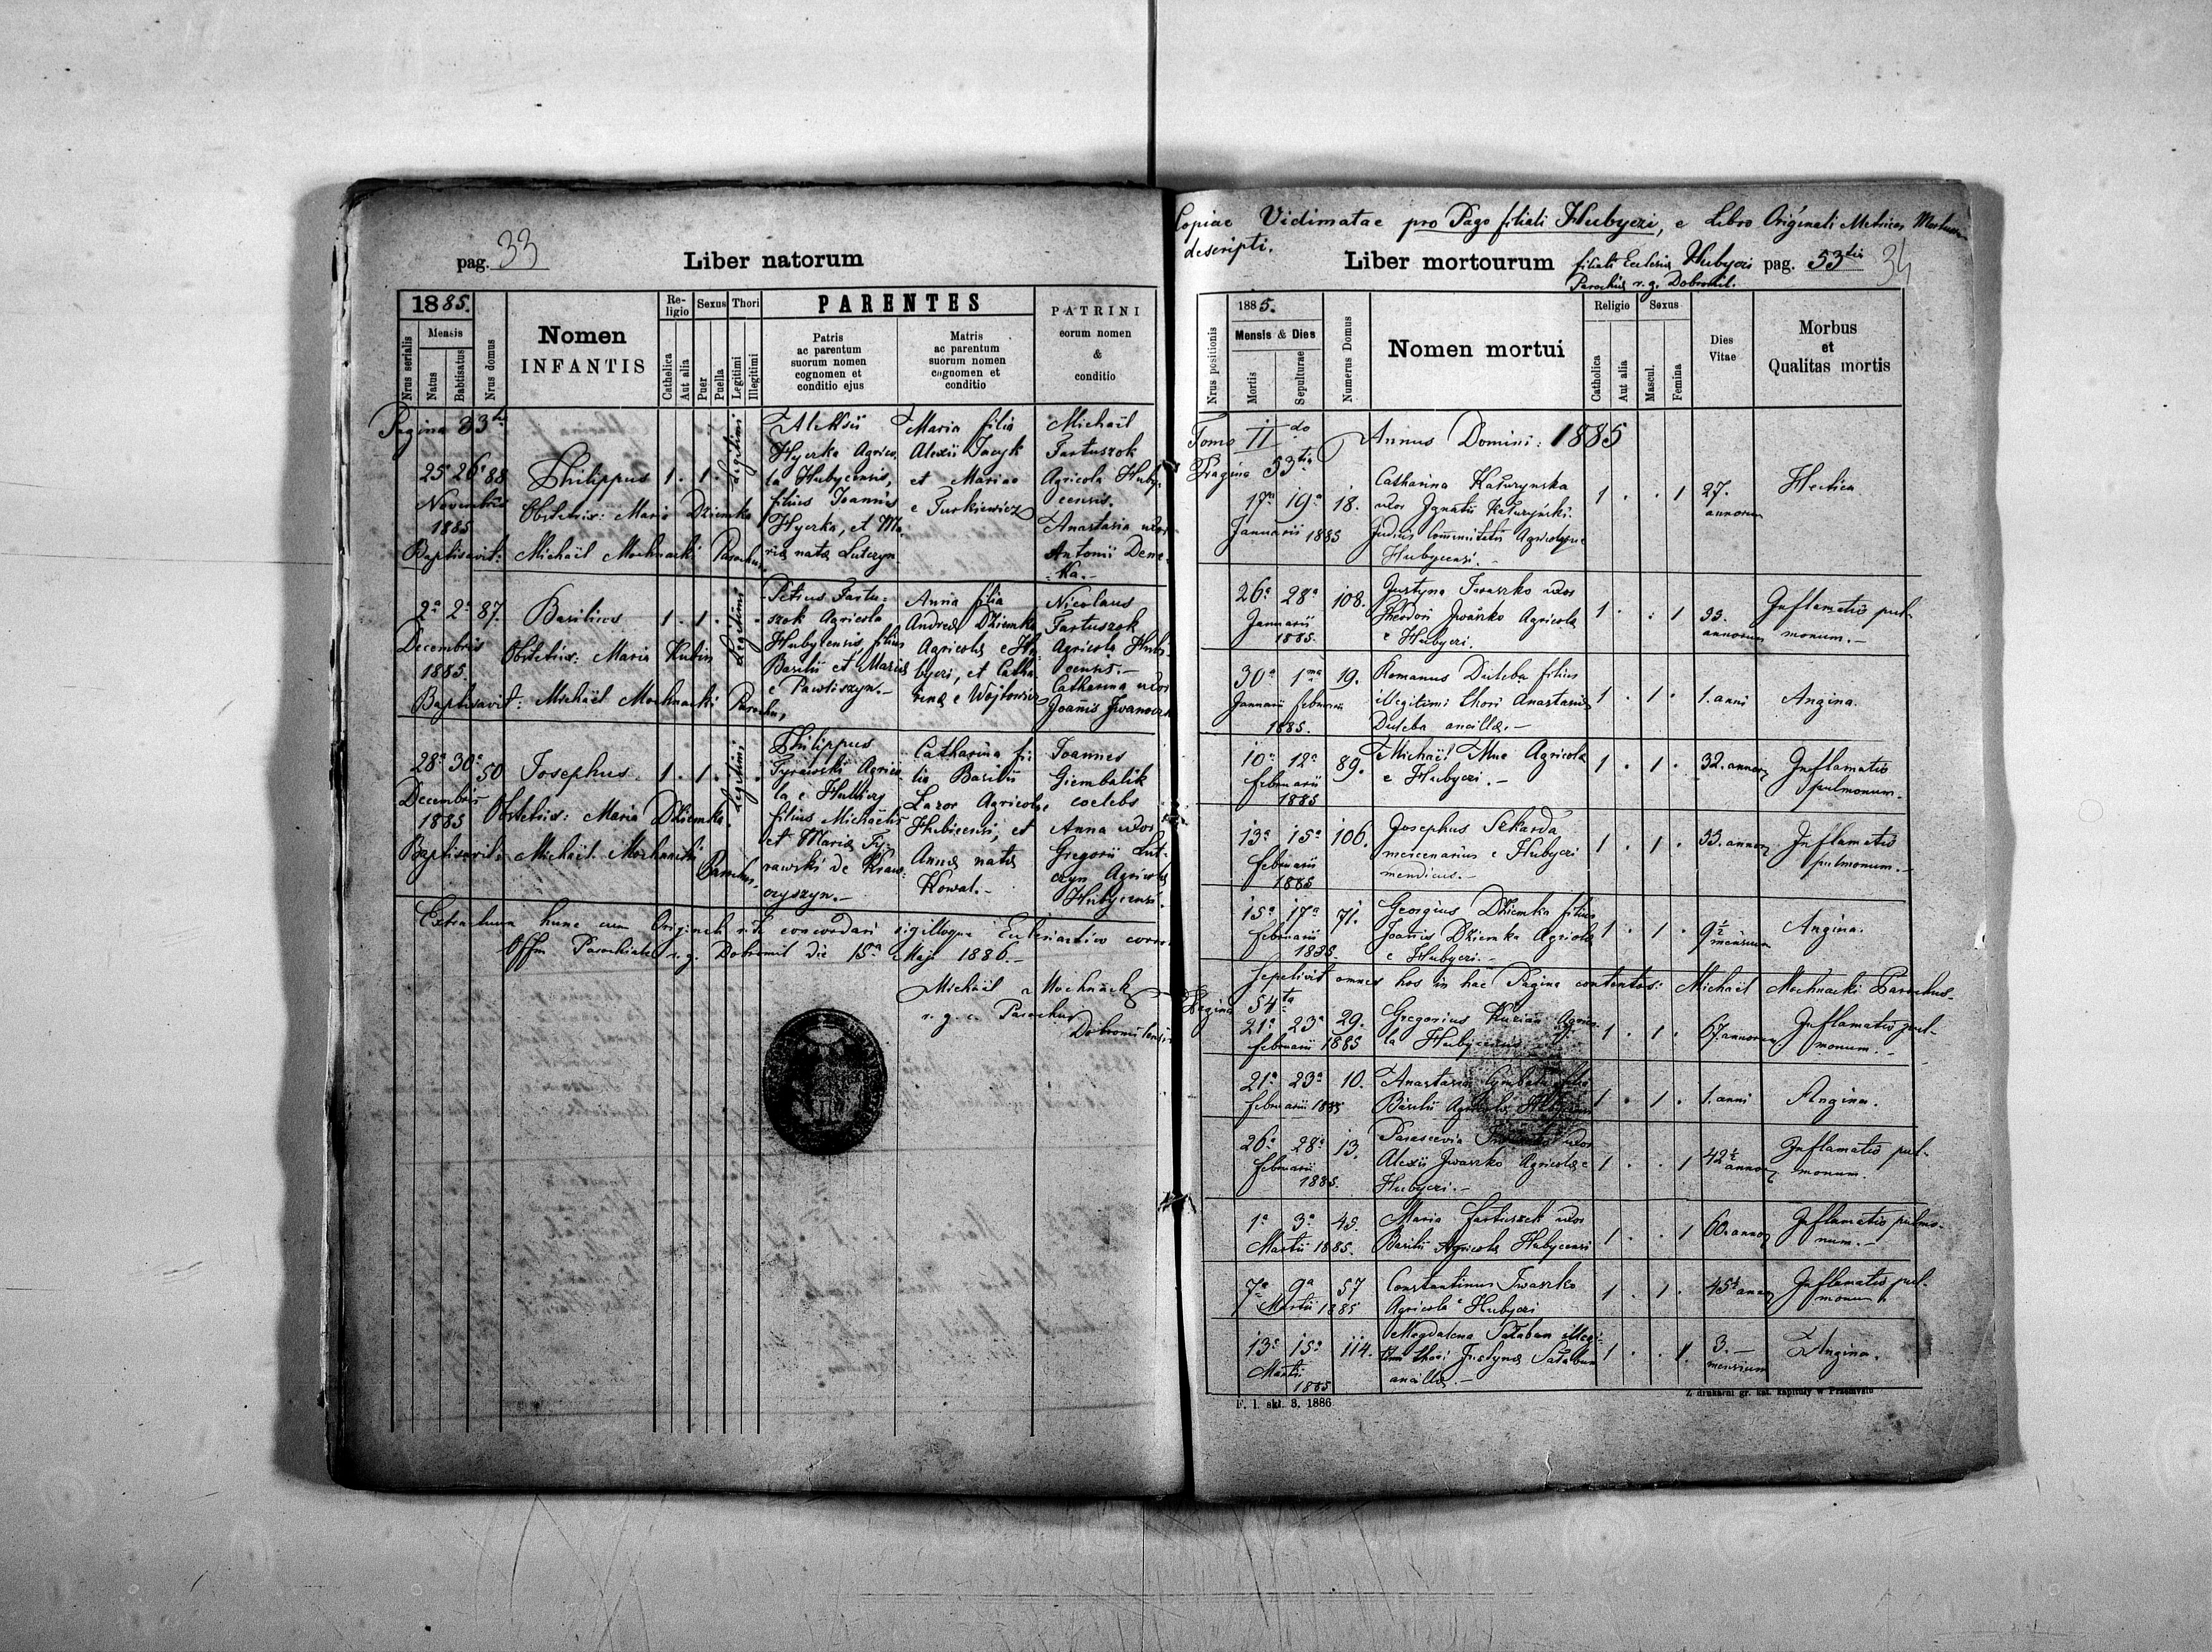 pag. 33
Liber natorum
1885.
Mensis
Nrus serialis
Natus
Babtisatus
Nrus domus
Nomen
INFANTIS
Re-
ligio
Catholica
Aut alia
Sexus
Puer
Puella
Thori
Legitimi
Illegitimi
PARENTES
Patris
ac parentum
suorum nomen
cognomen et
conditio ejus
Matris
ac parentum
suorum nomen
cognomen et
conditio
PATRINI
eorum nomen
&
conditio
Pagina 33tia
25a 26a 88
Novembris
1885
Philippus
1 . 1 .
Legitimi
Obstetrix: Maria Dziemka
Baptisavit: Michaël Mochnacki Parochus.
Aleksii
Hyerka Agrico
la Hubycensis,
filius Joannis
Hyerka, et Ma
ria nata Lutczyn
Maria filia
Alexii Jacyk
et Mariae
e Turkiewicz
Michaël
Fartuszok
Agricola Huby-
censis.
Anastasia uxor
Antonii Deme
ka.-
2a 2a 87.
Decembris
1885.
Basilius
1 . 1 .
Legitimi
Obstetrix: Maria Kubin
Baptisavit: Michaël Mochnacki Parochus,
Petrus Fartu-
szok Agricola
Hubycensis, filius
Basilii et Maria
e Pawliszyn.-
Anna filia
Andreae Dziemka
Agricola e Hu
byczi, et Catha
rina e Wojtowicz
Nicolaus
Fartuszok
Agricola Huby-
censis.-
Catharina uxor
Joannis Iwaneczk
28a 30a 50
Decembris
1885
Josephus
1 . 1 .
Legitimi
Obstetrix: Maria Dziemka.
Baptisavit: Michaël Mochnacki
Parochus.
Philippus
Tyrawski Agrico
la e Hubiczy
filius Michaelis
et Maria Ty-
rawski de Kraw-
czyszyn.-
Catharina fi-
lia Basilii
Lazor Agricola
Hubicensi, et
Anna nata
Kowal.-
Joannes
Giembalik
coelebs
Anna uxor
Gregorii Lut-
czyn Agricola
Hubycensi.
Extractum hunc cum Originali rite concordari sigilloque Ecclesiastico
Offm Parochiale r. g. Dobromil die 15a Maji 1886.-
Michaël Mochnacki
r. g. c. Parochus
Dobromilensis
Copiae Vidimatae pro Pago filiali Hubyczi, e Libro Originali Metrices
descripti.
Liber mortourum filiali Ecclesia Hubyczi pag. 53tia 34
Parochia r. g. Dobromil.
Nrus positionis
1885.
Mensis & Dies
Mortis
Sepulturae
Numerus Domus
Nomen mortui
Religio
Catholica
Aut alia
Sexus
Mascul.
Femina
Dies
Vitae
Morbus
et
Qualitas mortis
Tomo IIdo Annus Domini: 1885
Pagina 53tia
17a 19a 18.
Januarii 1885
Catharina Kałuzynska
uxor Ignatii Kałuzyński.
Judicis Communitatis Agricolaque
Hubycensi.-
1 . . 1
27.
annorum
Hectica
26a 28a 108.
Januarii
1885.
Justyna Iwaszko uxor
Theodori Iwaszko Agricola
e Hubyczi.
1 . . 1
33.
annorum
Inflamatio pul-
monum.-
30a 1ma 19.
Januarii februarii
1885.
Romanus Duleba filius
illegitimi thori Anastasia
Duleba ancilla.-
1 . 1 .
1. anni
Angina.
10a 12a 89.
februarii
1885
Michaël Muc Agricola
e Hubyczi.-
1 . 1 .
32. annor
Inflamatio
pulmonum.
13a 15a 106.
februarii
1885
Josephus Sekarda
mercenarius e Hubyczi
mendicus.-
1 . 1 .
33. annor
Inflamatio
pulmonum.-
15a 17a 71.
februarii
1885.
Georgius Dziemka filius
Joannis Dziemka Agricola
e Hubyczi.-
1 . 1 .
9½
mensium
Angina.
Sepelivit omnes hos in hac Pagina contentos: Michaël Mochnacki Parochus.
Pagina 54ta
21a 23a 29.
februarii 1885
Gregorius Kuzian Agrico
la Hubycensis
1 . 1 .
67. annorum
Inflamatio pul-
monum.-
21a 23a 10.
februarii 1885
Anastasia
Basilii Agricola
1 . 1 .
1. anni
Angina.
26a 28a 13.
februarii
1885.
Parascevia uxor
Alexii Iwaszko Agricola e
Hubyczi.-
1 . . 1
42½
annor
Inflamatio pul-
monum
1a 3a 45.
Martii 1885.
Maria Fartuszek uxor
Basilii Agricola Hubycensi
1 . . 1
60. annor
Inflamatio pulmo-
num.-
7a 9a 57
Martii 1885
Constantinus Iwaszko
Agricola e Hubyczi
1 . 1 .
45½ annor
Inflamatio pul-
monum
13a 15a 114.
Martii
1885
Magdalena Sałaban illegi-
timi thori Justyna Sałaban
ancilla.-
1 . . 1.
3.-
mensium
Angina.
F. l. skl. 3, 1886
Z drukarni gr. kat. kapituły w Przemyślu